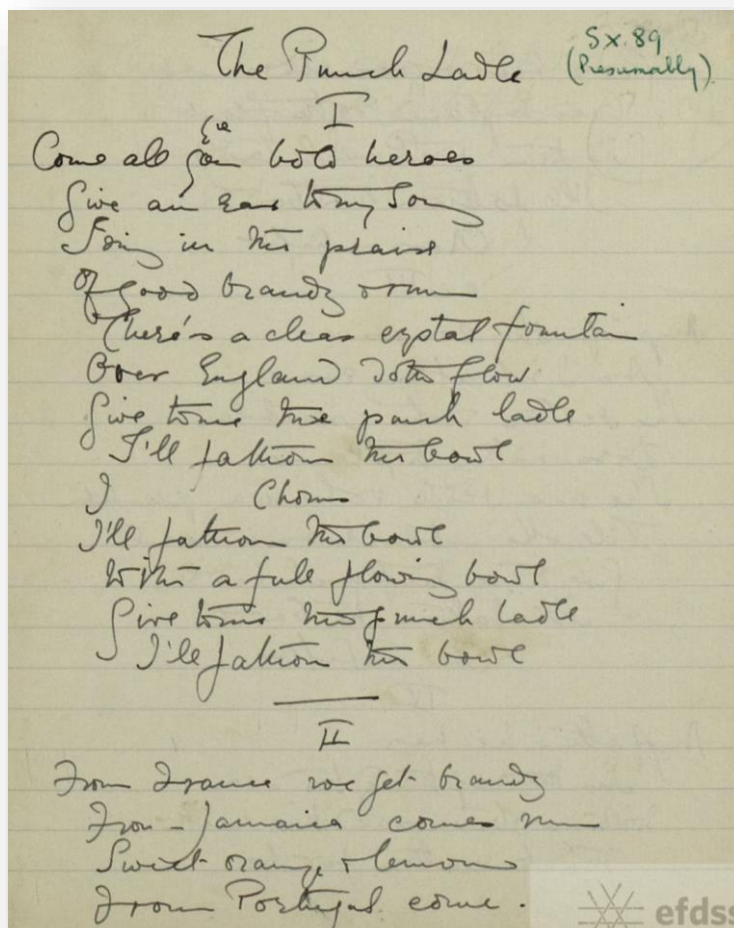 The Punch Ladle
Sx. 89
(Presumably)
I
Come all you bold heroes
Give an ear to my Song
Sing in the praise
Of good brandy & rum
There's a clear crystal fountain
Over England doth flow
Give to me the punch ladle
I'll fathom the bowl
I Chorus
I'll fathom the bowl
With a full flowing bowl
Give to me the punch ladle
I'll fathom the bowl
II
From France we get brandy
From Jamaica comes rum
Sweet orange & lemons
From Portugal come.
efdss